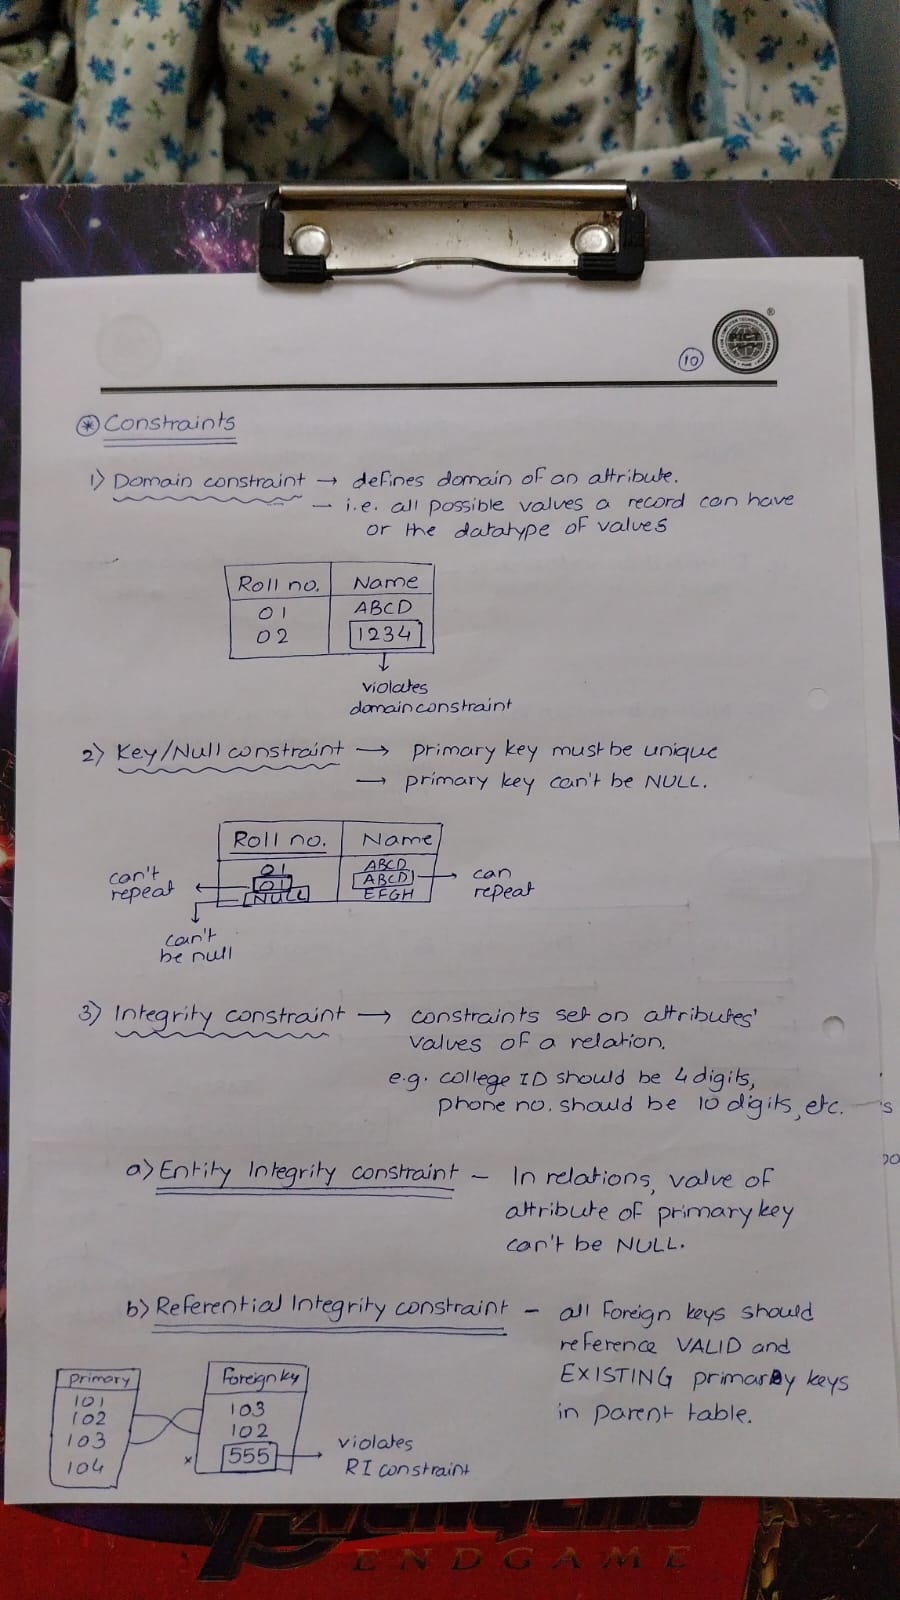 10
PICT
Constraints
1) Domain constraint → defines domain of an attribute.
– i.e. all possible values a record can have
or the datatype of values
Roll no. Name
01 ABCD
02 1234
↓
violates
domain constraint
2) Key/Null constraint → primary key must be unique
→ primary key can't be NULL.
Roll no. Name
01 ABCD
can't repeat ← 01 ABCD → can repeat
NULL EFGH
can't
be null
3) Integrity constraint → constraints set on attributes'
values of a relation.
e.g. college ID should be 4 digits,
phone no. should be 10 digits, etc.
a) Entity Integrity constraint – In relations, value of
attribute of primary key
can't be NULL.
b) Referential Integrity constraint – all foreign keys should
reference VALID and
EXISTING primary keys
in parent table.
primary
101
102
103
104
Foreign ky
103
102
x 555 → violates
RI constraint
ENDGAME